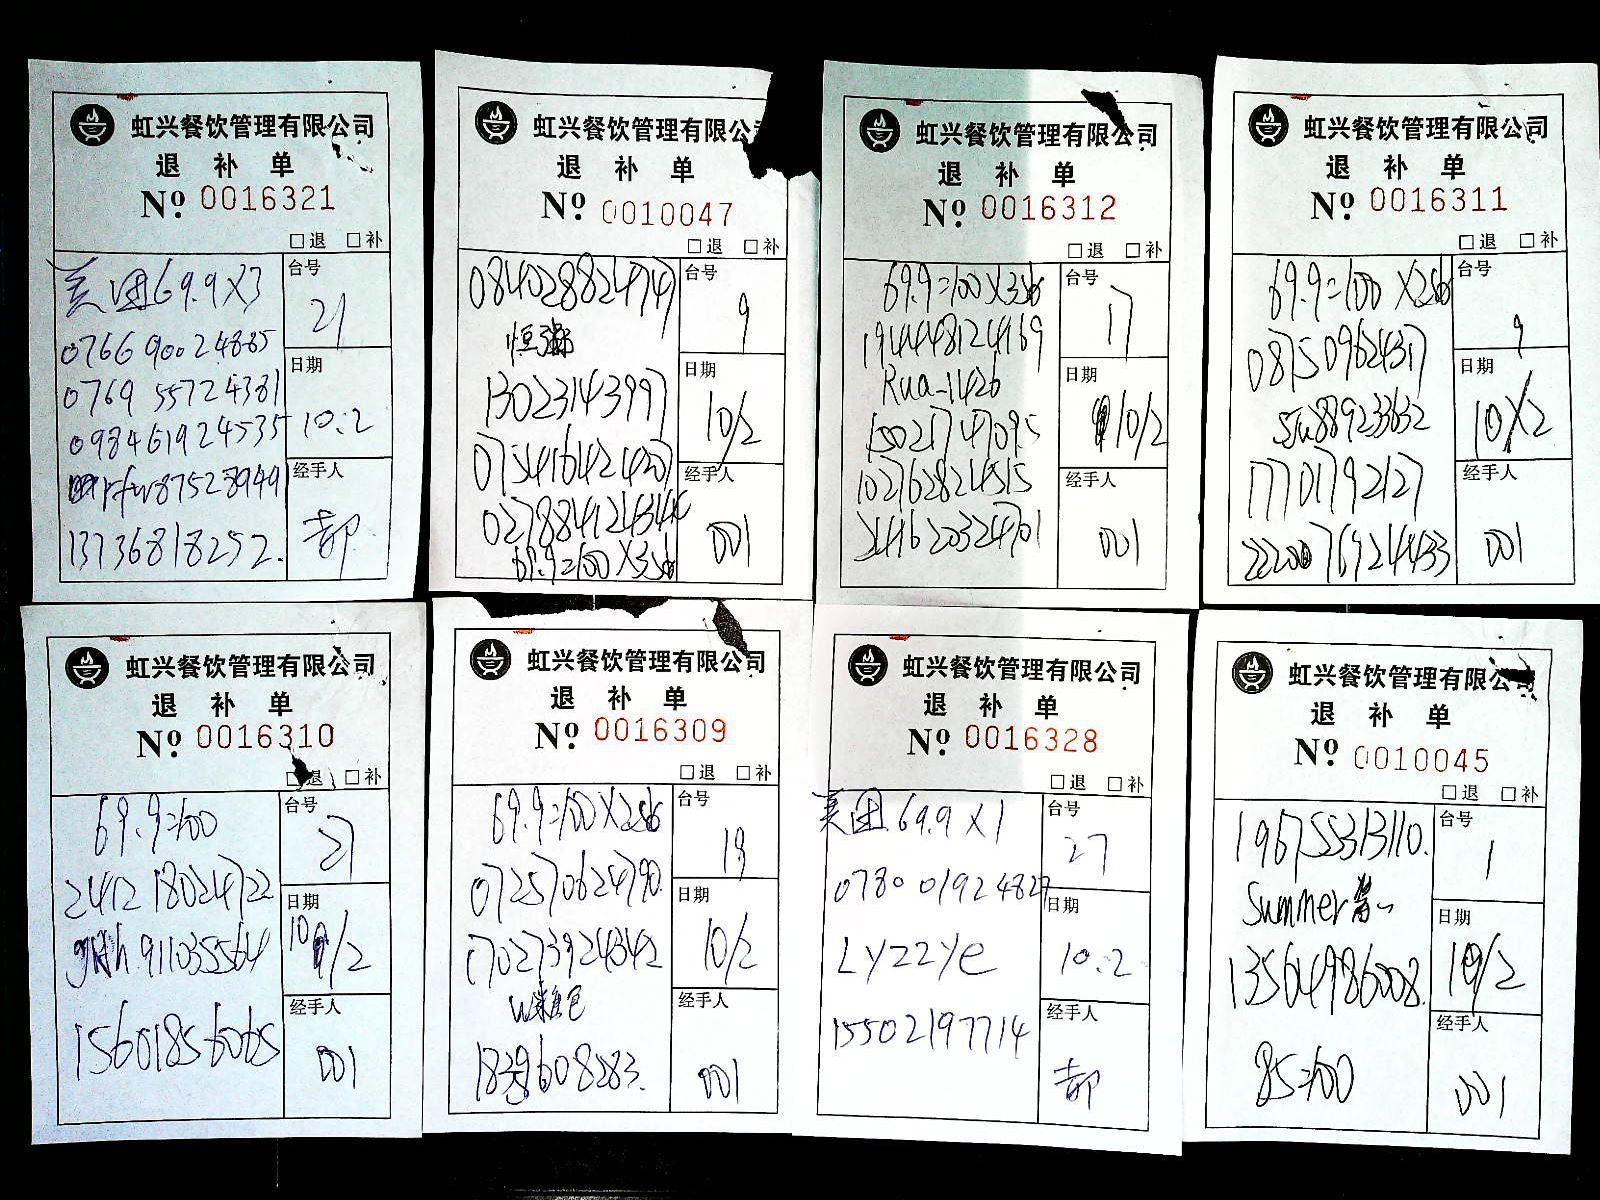 虹兴餐饮管理有限公司
退 补 单
Nº 0016321
□退 □补
美团69.9X3
0766 9002 4885
0769 5572 4381
098461924535
rfw87523949
13736818252.
台号
21
日期
10.2
经手人
虹兴餐饮管理有限公
退 补 单
Nº 0010047
□退 □补
084028824747
恒
13023143997
075416424207
69.9=100 X3
台号
9
日期
10/2
经手人
001
虹兴餐饮管理有限公司
退 补 单
Nº 0016312
□退 □补
69.9=100 X3
194448124169
Rua-1426
102762824515
2441620324701
台号
17
日期
10/2
经手人
001
虹兴餐饮管理有限公司
退 补 单
Nº 0016311
□退 □补
69.9=100 X2
087509624317
su889233632
17701792127
台号
9
日期
10/2
经手人
001
虹兴餐饮管理有限公司
退 补 单
Nº 0016310
□退 □补
69.9=100
2412 18024722
911035564
15601856065
台号
27
日期
10/2
经手人
001
虹兴餐饮管理有限公司
退 补 单
Nº 0016309
□退 □补
69.9=100 X2
072570624790.
170273924342
台号
19
日期
10/2
经手人
001
虹兴餐饮管理有限公司
退 补 单
Nº 0016328
□退 □补
美团 69.9 X1
0780 0192 4827
Lyzzye
15502197714
台号
27
日期
10.2
经手人
虹兴餐饮管理有限公司
退 补 单
Nº 0010045
□退 □补
19675531311​0.
Summer
13564986008.
85=100
台号
1
日期
10/2
经手人
001